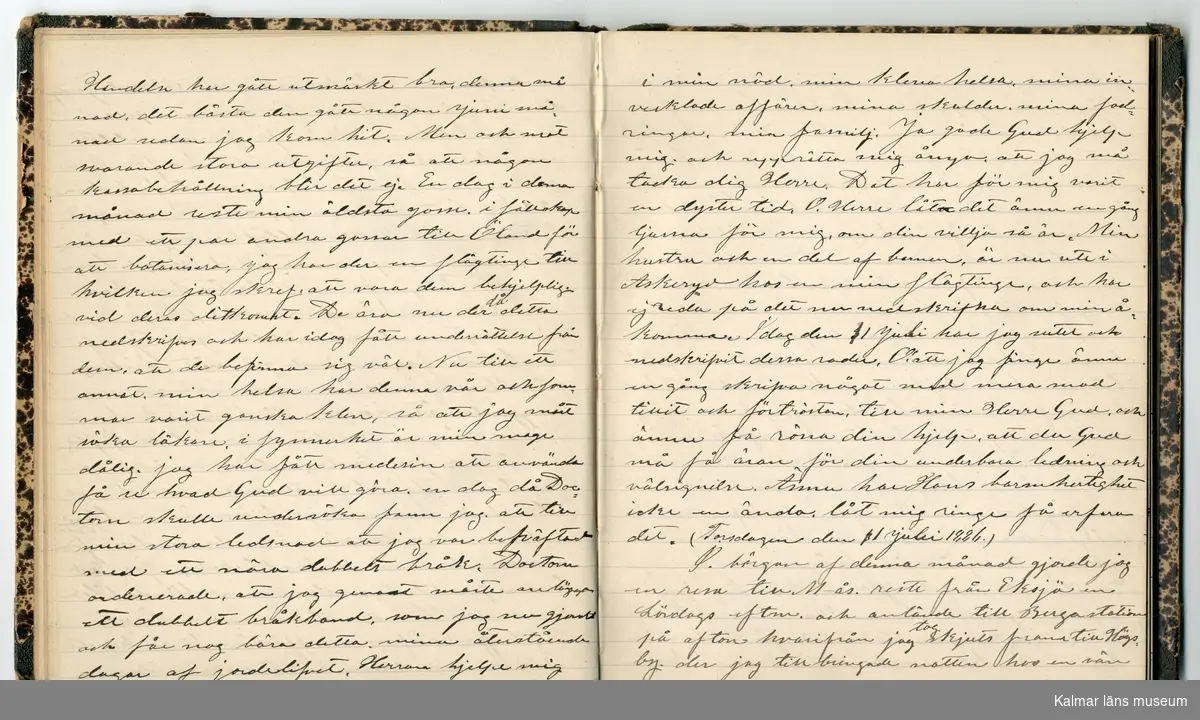 Handeln har gått utmärkt bra, denna må
nad, det bästa den gått någon Juni må-
nad sedan jag kom hit. Men och mot
svarande stora utgifter, så att någon
kassabehållning blir det ej. En dag i denna
månad reste min äldsta gosse, i sällskap
med ett par andra gossar till Öland för
att botanisera, jag har der en slägtinge till
hvilken jag skref, att vara dem behjelplig
vid deras ditkomst. De äro nu der då detta
nedskrifves och har idag fått underrättelse från
dem, att de befinna sig väl. Nu till ett
annat, min helsa har denna vår och som-
mar varit ganska klen, så att jag måst
söka läkare, i synnerhet är min mage
dålig. jag har fått medesin att använda
få se hvad Gud vill göra. en dag då Doc-
torn skulle undersöka fann jag, att till
min stora ledsnad att jag var behäftad
med ett nära dubbelt bråk. Doctorn
ordinerade, att jag genast måste anlägga
ett dubbelt bråkband, som jag nu gjordt
och får nog bära detta, mina återstående
dagar af jordelifvet. Herran hjelpe mig
i min nöd, min klena helsa, mina in-
vecklade affärer, mina skulder, mina fod-
ringar, min familj. Ja gode Gud hjelp
mig, och upprätta mig ånyo, att jag må
tacka dig Herre. Det har för mig varit
en dyster tid. O, Herre låt det ännu en gång
ljusna för mig, om din villja så är. Min
hustru och en del af barnen, är nu ute i
Askeryd hos en min slägtinge, och har
ej reda på det nu nedskrifna om min å-
komma. I dag den 1 Juli har jag sutet och
nedskrifvit dessa rader. O, att jag finge ännu
en gång skrifva något med mera mod
tillit och förtröstan, till min Herre Gud, och
ännu få röna din hjelp, att du Gud
må få äran för din underbara ledning och
välsignelse. Ännu har Hans barmhertighet
icke en ända, låt mig ringe få erfara
det. (Torsdagen den 1 Juli 1886.)
I början af denna månad gjorde jag
en resa till M-ås. reste från Eksjö en
Lördags eftm. och anlände till Berga station
på afton hvarifrån jag tog skjuts fram till Högs-
by. der jag till bringade natten hos en vän
Kalmar läns museum